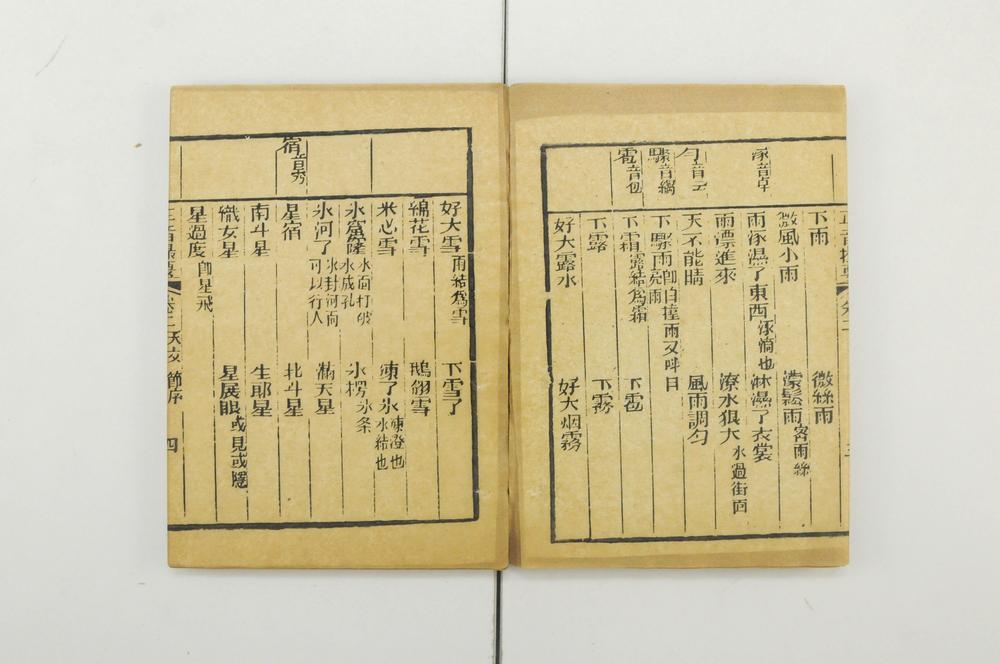 涿音卓
勻音云
驟音縐
雹音包
下雨
微絲雨
微風小雨
濛鬆雨 密雨絲
雨涿濕了東西 涿滴也
淋濕了衣裳
雨漂進來
潦水狠大 水過街面
天不能晴
風雨調勻
下驟雨 即白撞雨又呌日下亮雨
下霜 露結為霜
下雹
下露
下霧
好大露水
好大烟霧
宿音秀
好大雪 雨結為雪
下雪了
綿花雪
鵝翎雪
米心雪
凍了氷 凍澄也 水結也
氷窟窿 氷面打破氷成孔
氷楞 氷條
氷河了 氷封河面可以行人
滿天星
星宿
北斗星
南斗星
生耶星
織女星
星展眼 或見或隱
星過度 卽星飛
正音撮要 卷二 天文 節序 四